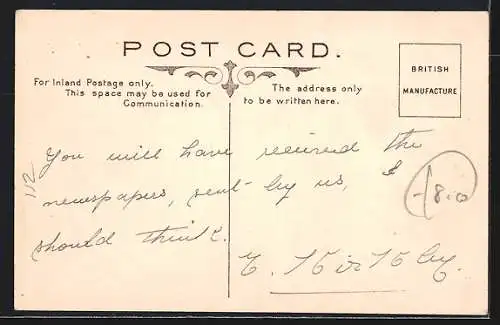 POST CARD.
For Inland Postage only.
This space may be used for
Communication.
The address only
to be written here.
BRITISH
MANUFACTURE
You will have received the
newspapers, sent by us, I
should think.